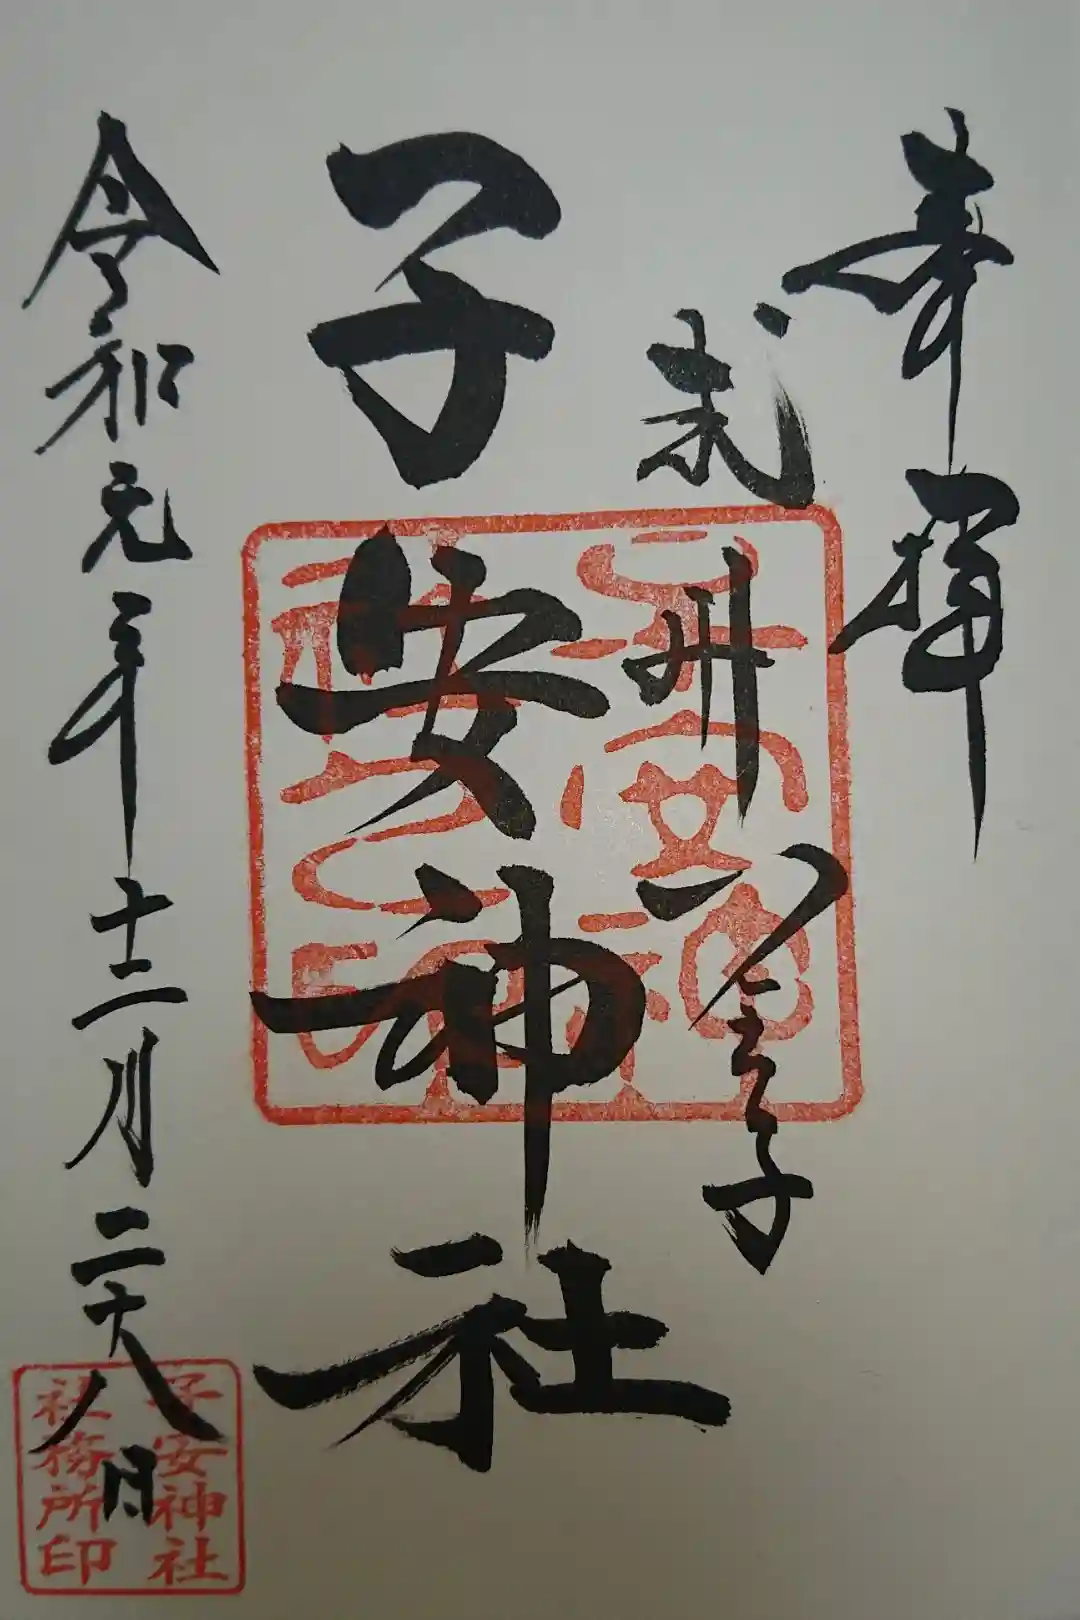 奉拝
武州八王子
子安神社
令和元年十二月二十八日
子安神社
社務所印